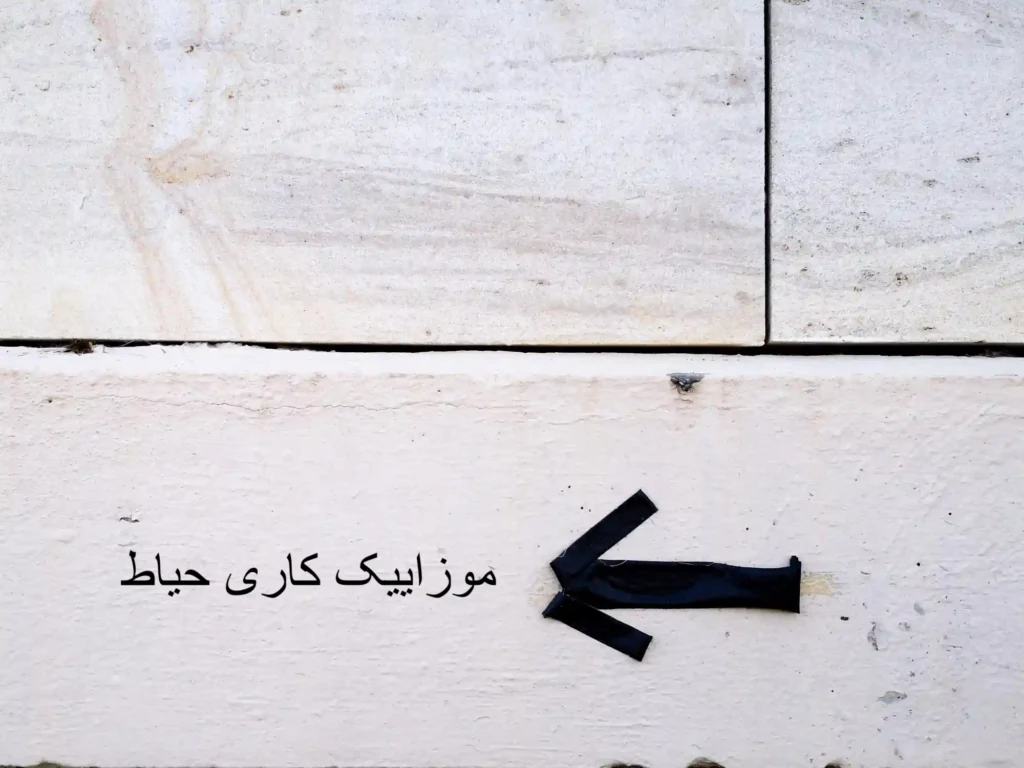 موزاییک کاری حیاط